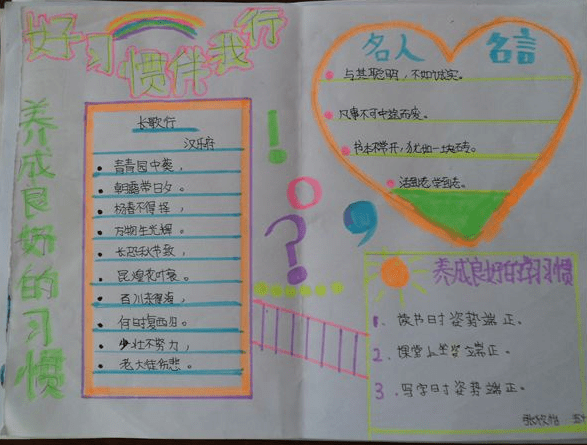 好习惯伴我行
养成良好的习惯
长歌行
汉乐府
青青园中葵，
朝露带日夕。
杨春不得择，
万物生光辉。
长恐秋节致，
昆煌花叶衰。
百川东到海，
何时复西归。
少壮不努力，
老大徒伤悲。
！
？
，
名人 名言
与其聪明，不如诚实。
凡事不可中途而废。
书本不常开，犹如一块砖。
活到老，学到老。
养成良好的学习惯
1、读书时姿势端正。
2、课堂上坐姿端正。
3、写字时姿势端正。